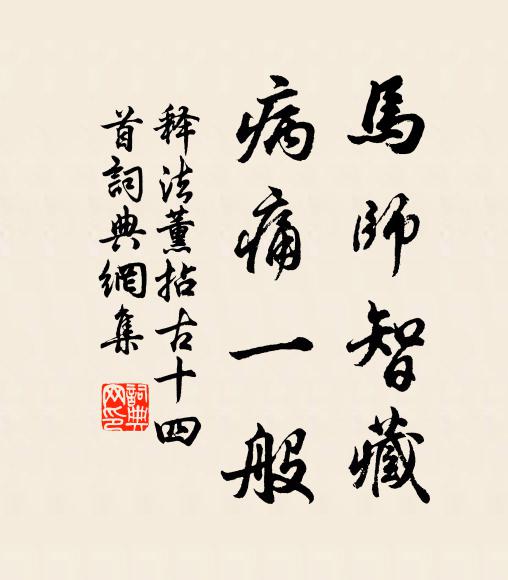 馬師智藏
病痛一般
释法薰拈古十四
首詞典網集
詞典網印